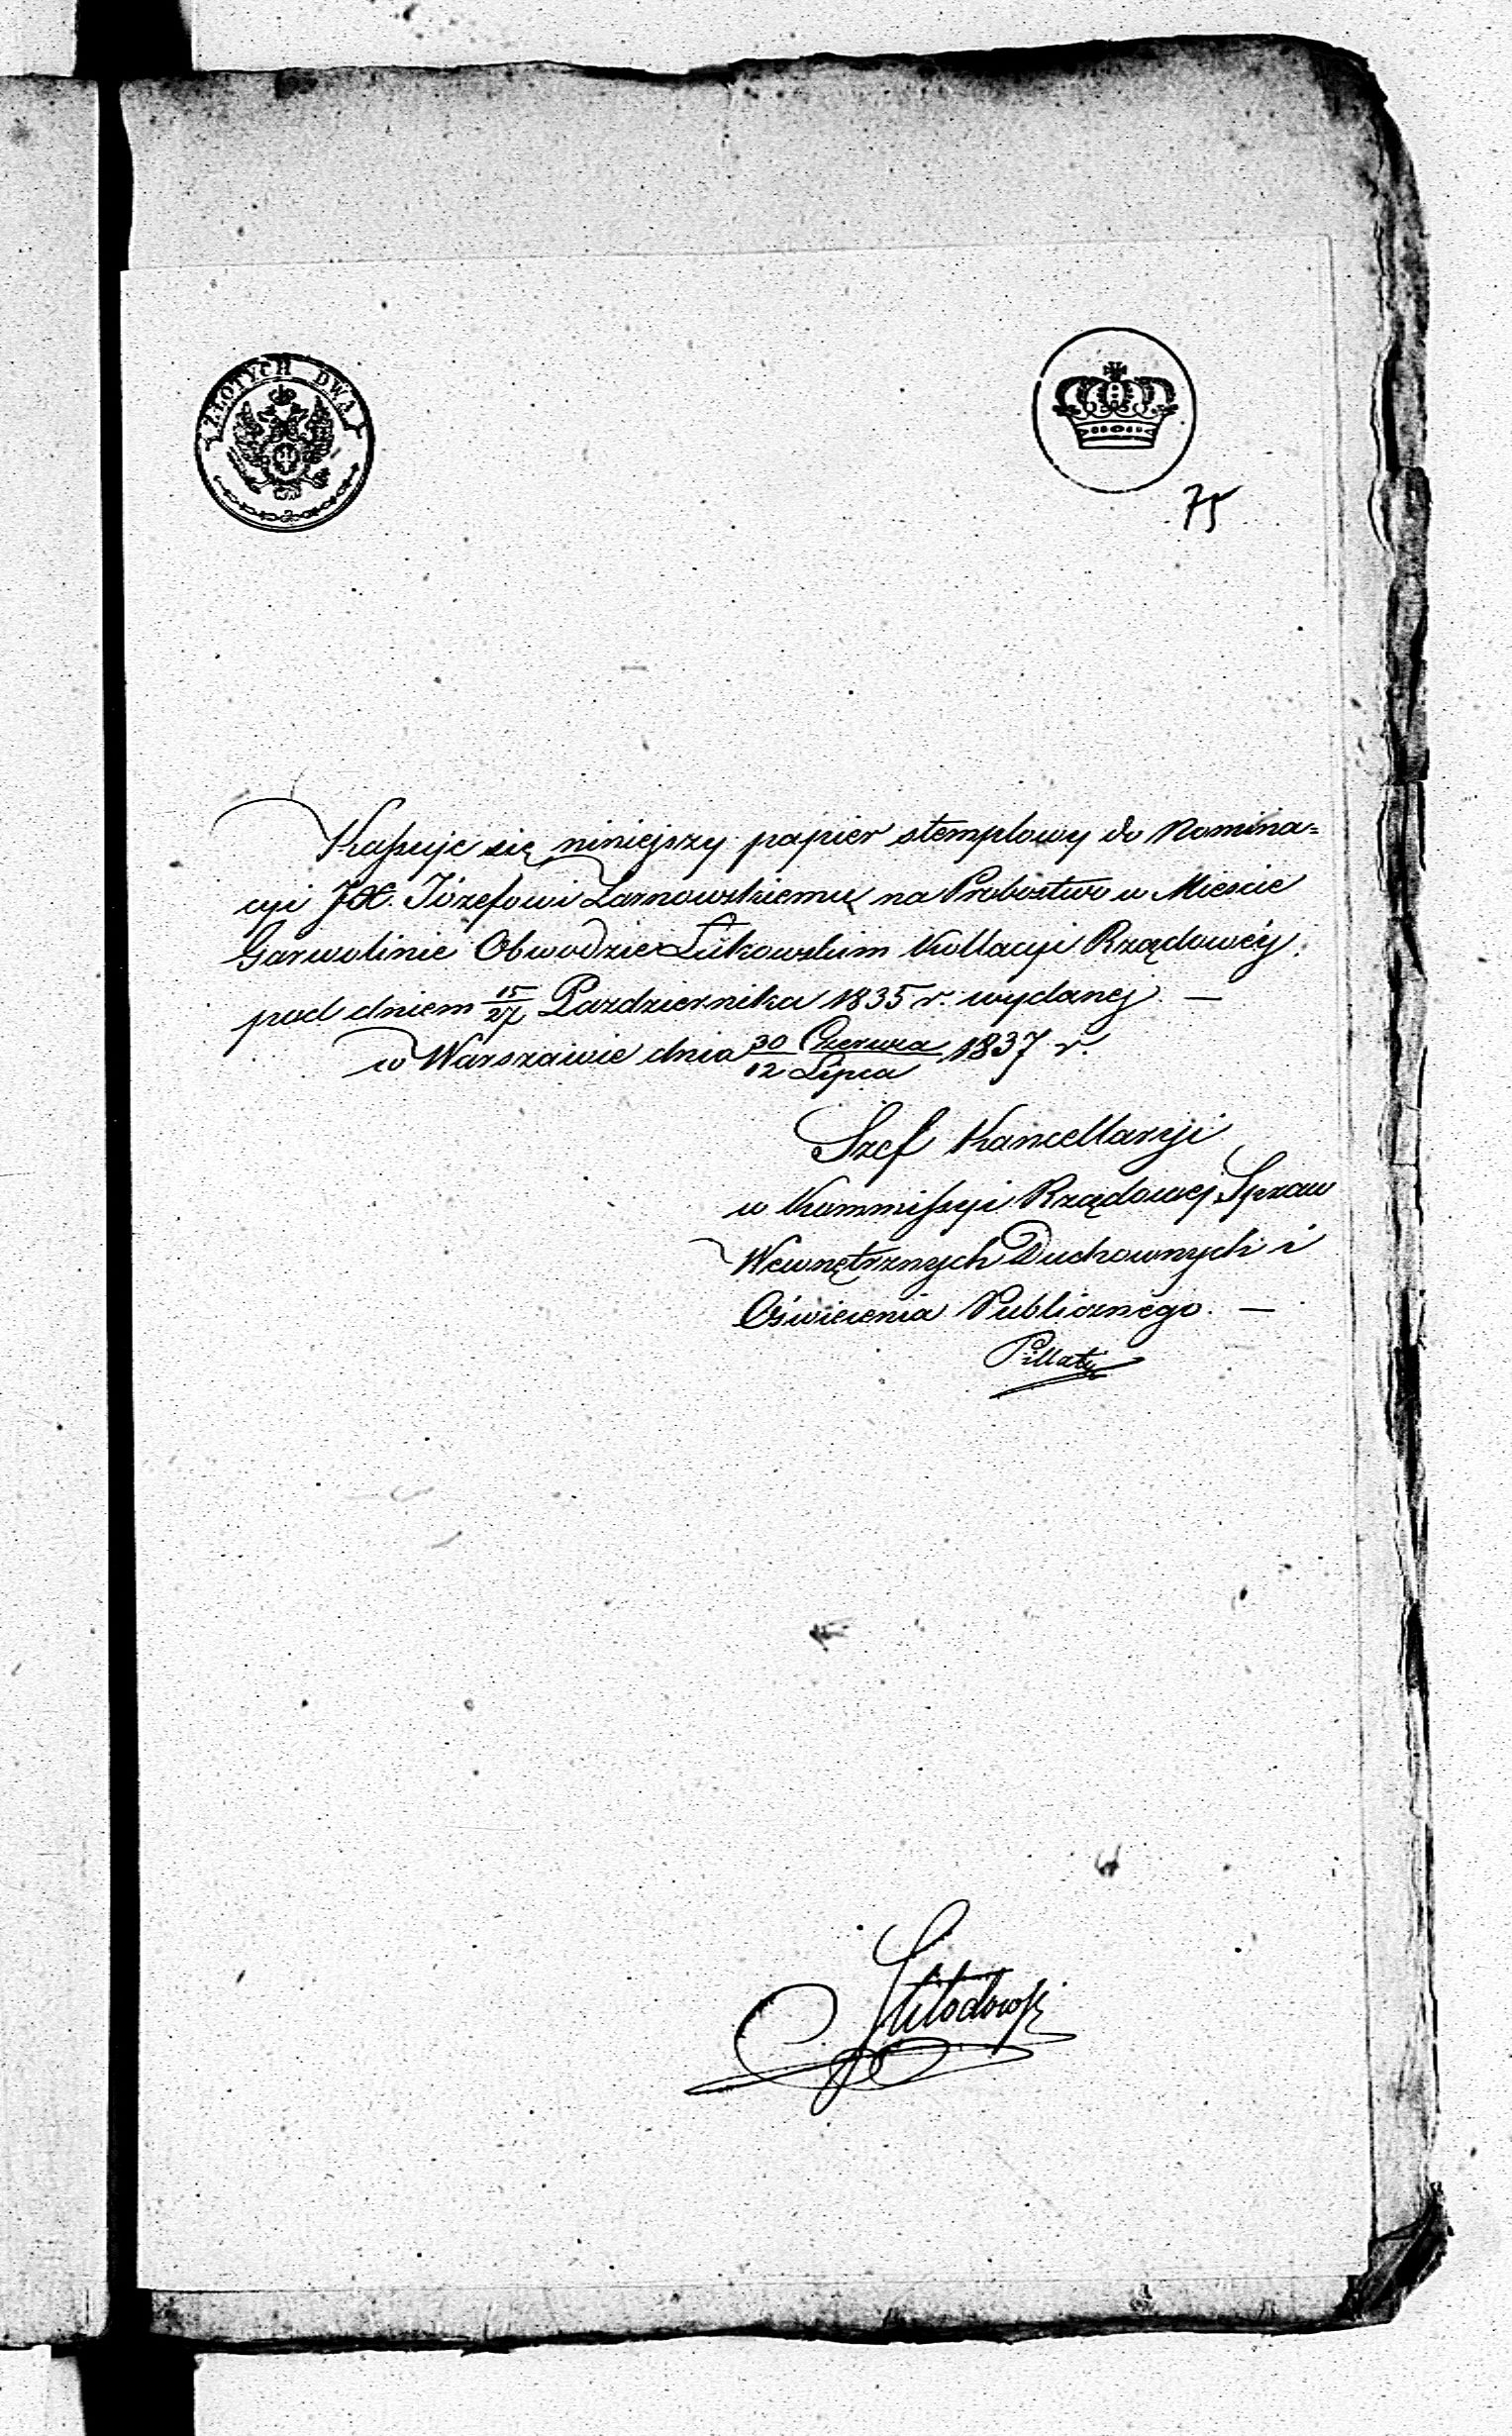 ZŁOTYCH DWA
75
Kassuje się niniejszy papier stemplowy do Nomina=
cyi JX. Józefowi Zarnowskiemu na Probostwo w Mieście
Garwolinie Obwodzie Łukowskim Kollacyi Rządowéy
pod dniem 15/27 Pazdziernika 1835 r. wydanej. —
w Warszawie dnia 30 Czerwca/12 Lipca 1837 r.
Szef Kancellaryi
w Kommissyi Rządowej Spraw
Wewnętrznych Duchownych i
Oświecenia Publicznego. —
Pillaty